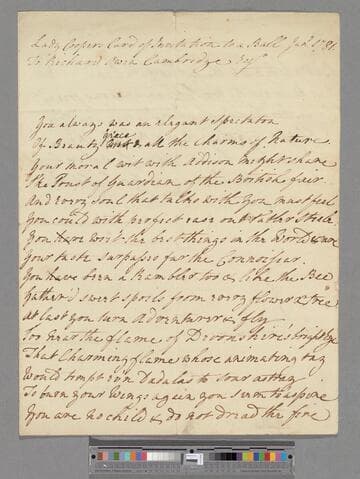 Lady Coopers Card of Invitation to a Ball Jan: 1781
To Richard Owen Cambridge Esq

You always was an elegant Spectator
Of Beauty grace & all the charms of Nature
Your moral wit with Addison might share
The Trust of Guardian of the British fair
And every Soul that talks with you must feel
You could with perfect ease out Tatler Steele
You have writ the best things in the World & more
Your taste surpasses far the Connoisieur
You have been a Rambler too & like the Bee
Gather'd sweet spoils from every flower & tree
At last you turn Adventurer & fly
Too near the flame of Devonshire's bright Eye
That Charming flame whose animating ray
Would tempt e'en Dadalas to soar astray
To burn your Wings again you seem to aspire
You are no child & do not dread the fire